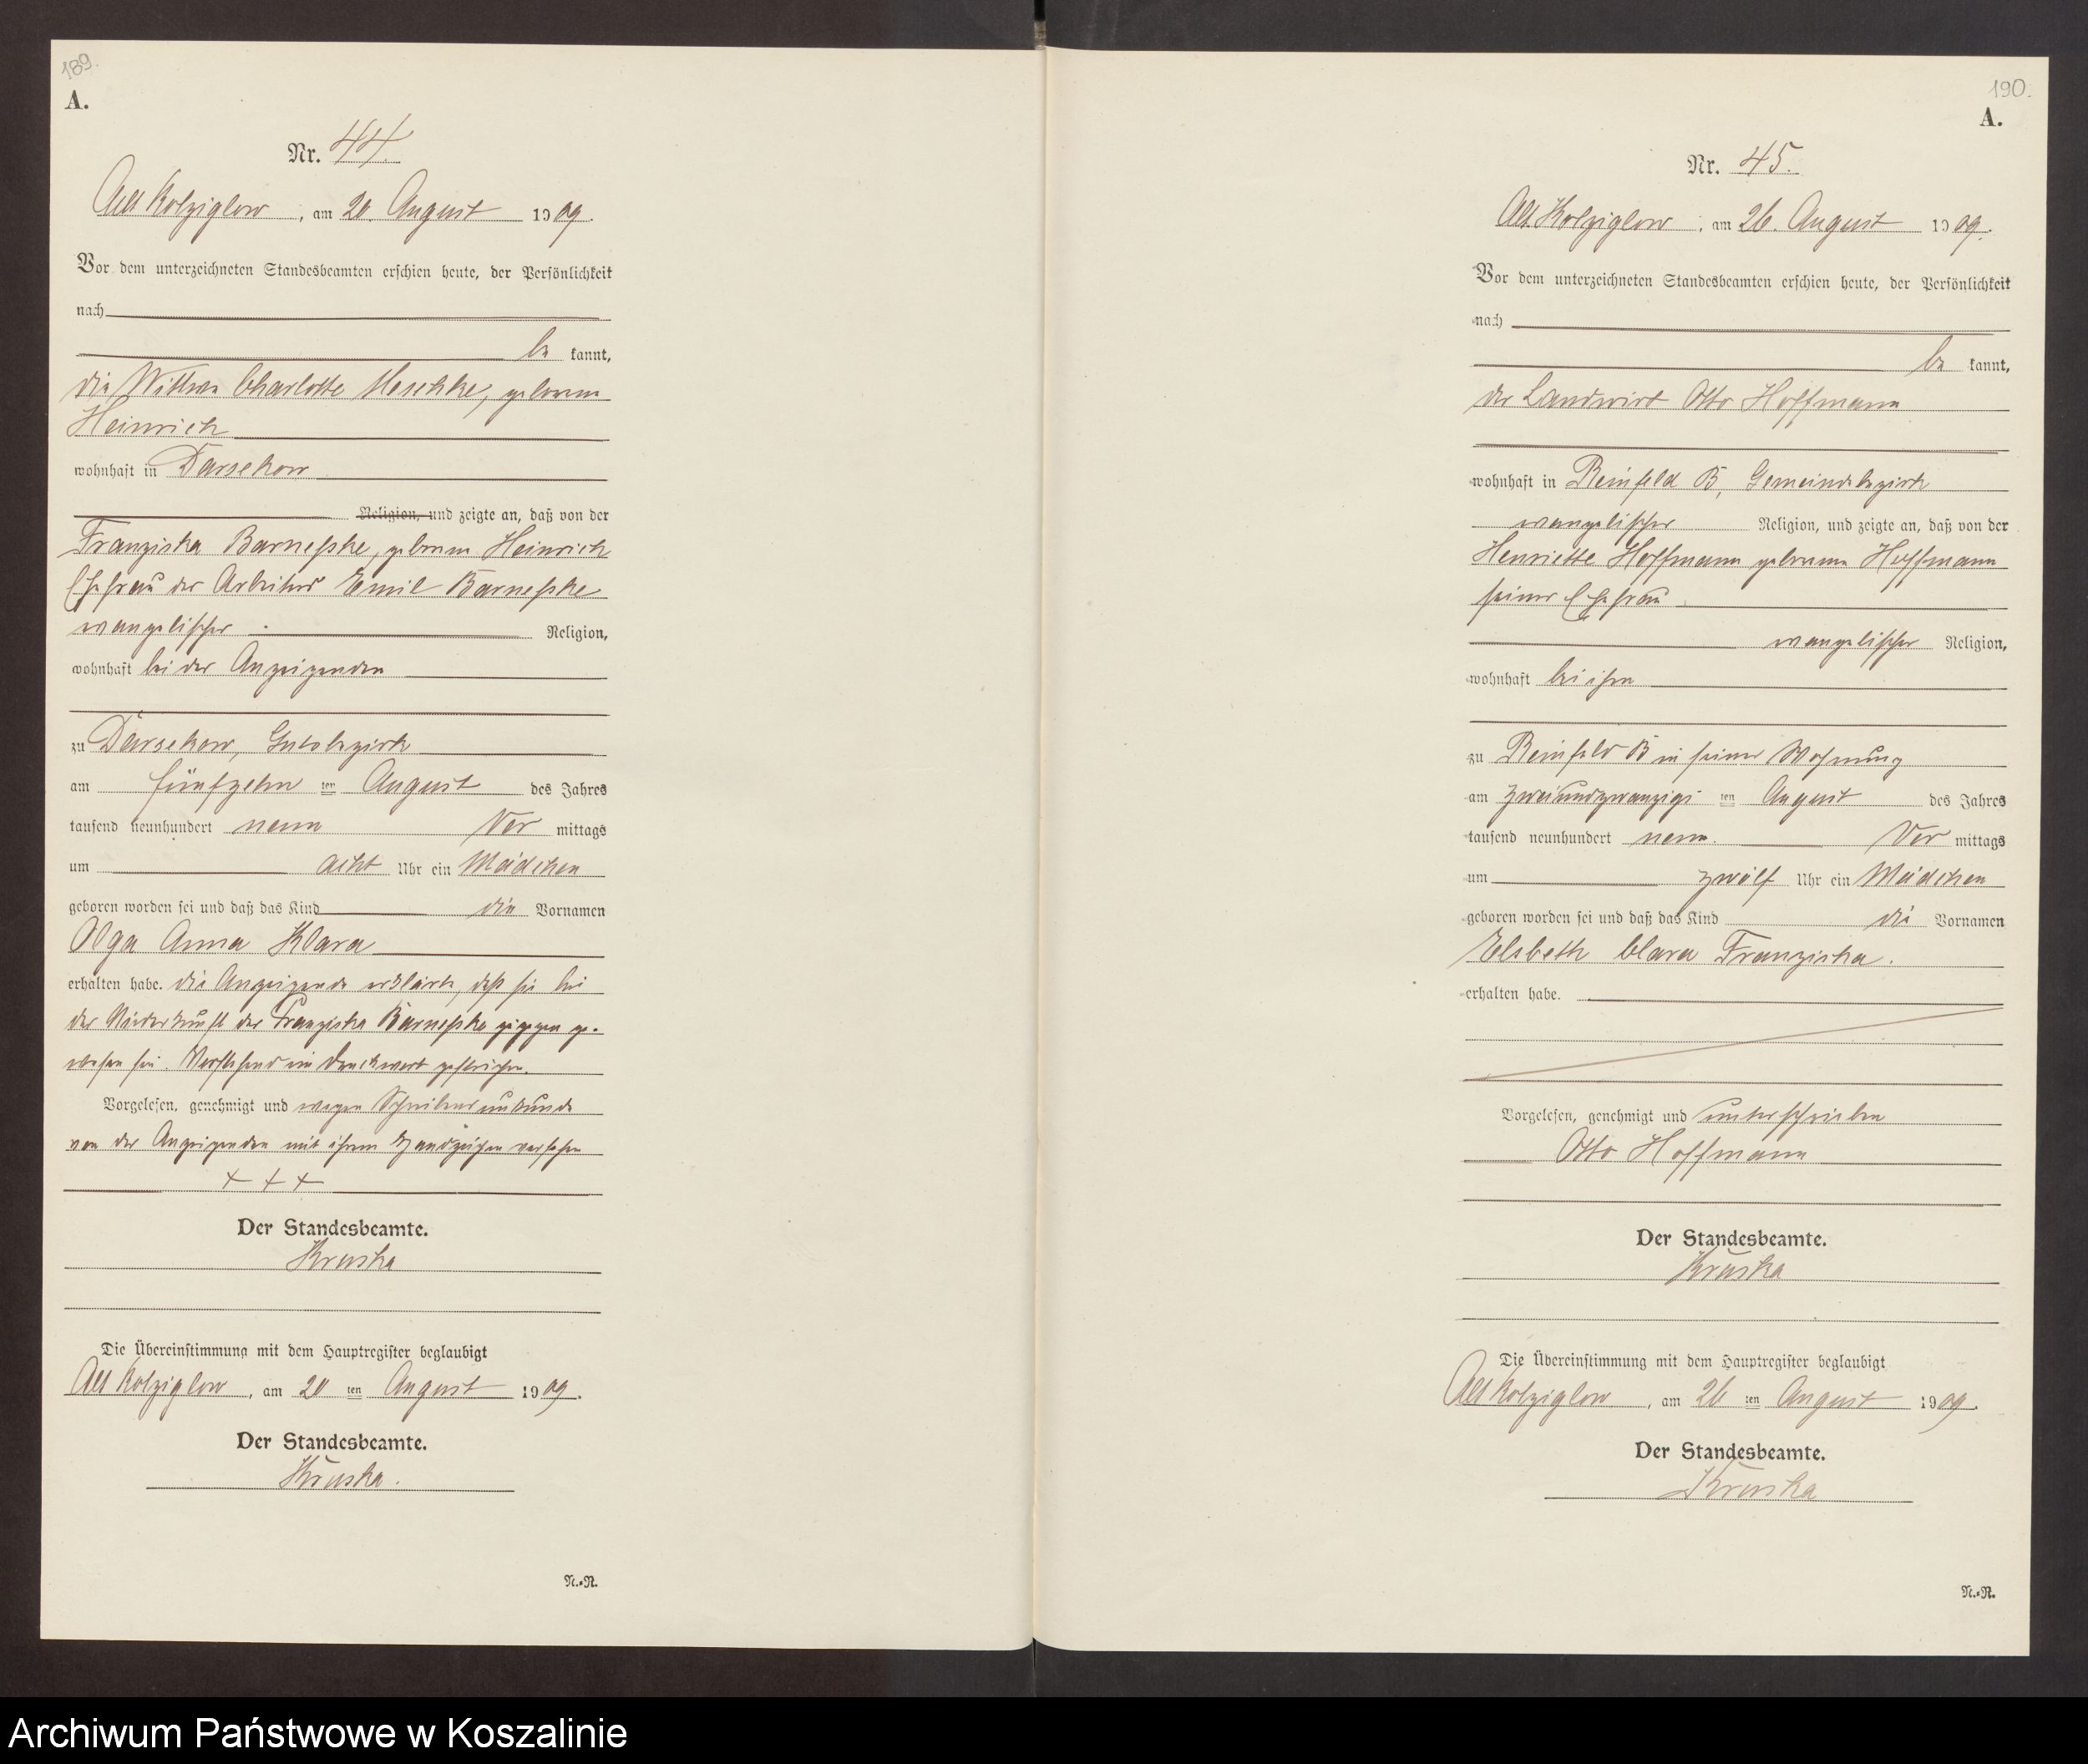 189.
A.
Nr. 44.
Alt Kolziglow, am 20. August 1909.
Vor dem unterzeichneten Standesbeamten erschien heute, der Persönlichkeit
nach
be kannt,
die Wittwe Charlotte Meschke, geborene
Heinrich
wohnhaft in Darsekow
Religion, und zeigte an, daß von der
Franziska Barneske, geborene Heinrich
Ehefrau des Arbeiters Emil Barneske
evangelischer Religion,
wohnhaft bei der Anzeigenden
zu Darsekow, Gutsbezirk
am fünfzehn ten August des Jahres
tausend neunhundert neun Vor mittags
um acht Uhr ein Mädchen
geboren worden sei und daß das Kind die Vornamen
Olga Anna Klara
erhalten habe. die Anzeigende erklärte, daß sie bei
der Niederkunft der Franziska Barneske zugegen ge-
wesen sei. Vorstehend ein Druckwort gestrichen.
Vorgelesen, genehmigt und wegen Schreibensunkunde
von der Anzeigenden mit ihrem Handzeichen versehen
+ + +
Der Standesbeamte.
Kruska
Die Übereinstimmung mit dem Hauptregister beglaubigt
Alt Kolziglow, am 20 ten August 1909.
Der Standesbeamte.
Kruska.
N.-R.
190.
A.
Nr. 45.
Alt Kolziglow, am 26. August 1909.
Vor dem unterzeichneten Standesbeamten erschien heute, der Persönlichkeit
nach
be kannt,
der Landwirt Otto Hoffmann
wohnhaft in Reinfeld B, Gemeindebezirk
evangelischer Religion, und zeigte an, daß von der
Henriette Hoffmann geborene Hoffmann
seiner Ehefrau
evangelischer Religion,
wohnhaft bei ihm
zu Reinfeld B in seiner Wohnung
am zweiundzwanzigs ten August des Jahres
tausend neunhundert neun. Vor mittags
um zwölf Uhr ein Mädchen
geboren worden sei und daß das Kind die Vornamen
Elsbeth Clara Franziska.
erhalten habe.
Vorgelesen, genehmigt und unterschrieben
Otto Hoffmann
Der Standesbeamte.
Kruska
Die Übereinstimmung mit dem Hauptregister beglaubigt
Alt Kolziglow, am 26 ten August 1909.
Der Standesbeamte.
Kruska
N.-R.
Archiwum Państwowe w Koszalinie